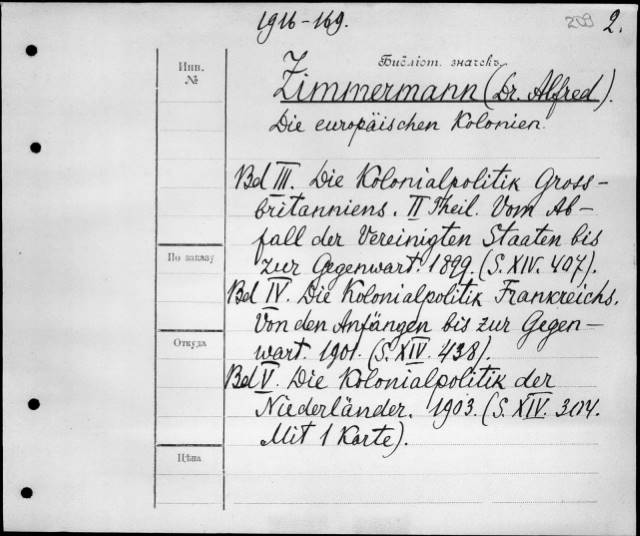 1916-169.
209 2.
Инв.
№
Библіот. значекъ
Zimmermann (Dr. Alfred).
Die europäischen Kolonien.
Bd III. Die Kolonialpolitik Gross-
britanniens. II Theil. Vom Ab-
fall der Vereinigten Staaten bis
zur Gegenwart. 1899. (S. XIV. 407).
По заказу
Bd IV. Die Kolonialpolitik Frankreichs.
Von den Anfängen bis zur Gegen-
Откуда
wart. 1901. (S. XIV. 438).
Bd V. Die Kolonialpolitik der
Niederländer. 1903. (S. XIV. 304.
Mit 1 Karte).
Цѣна